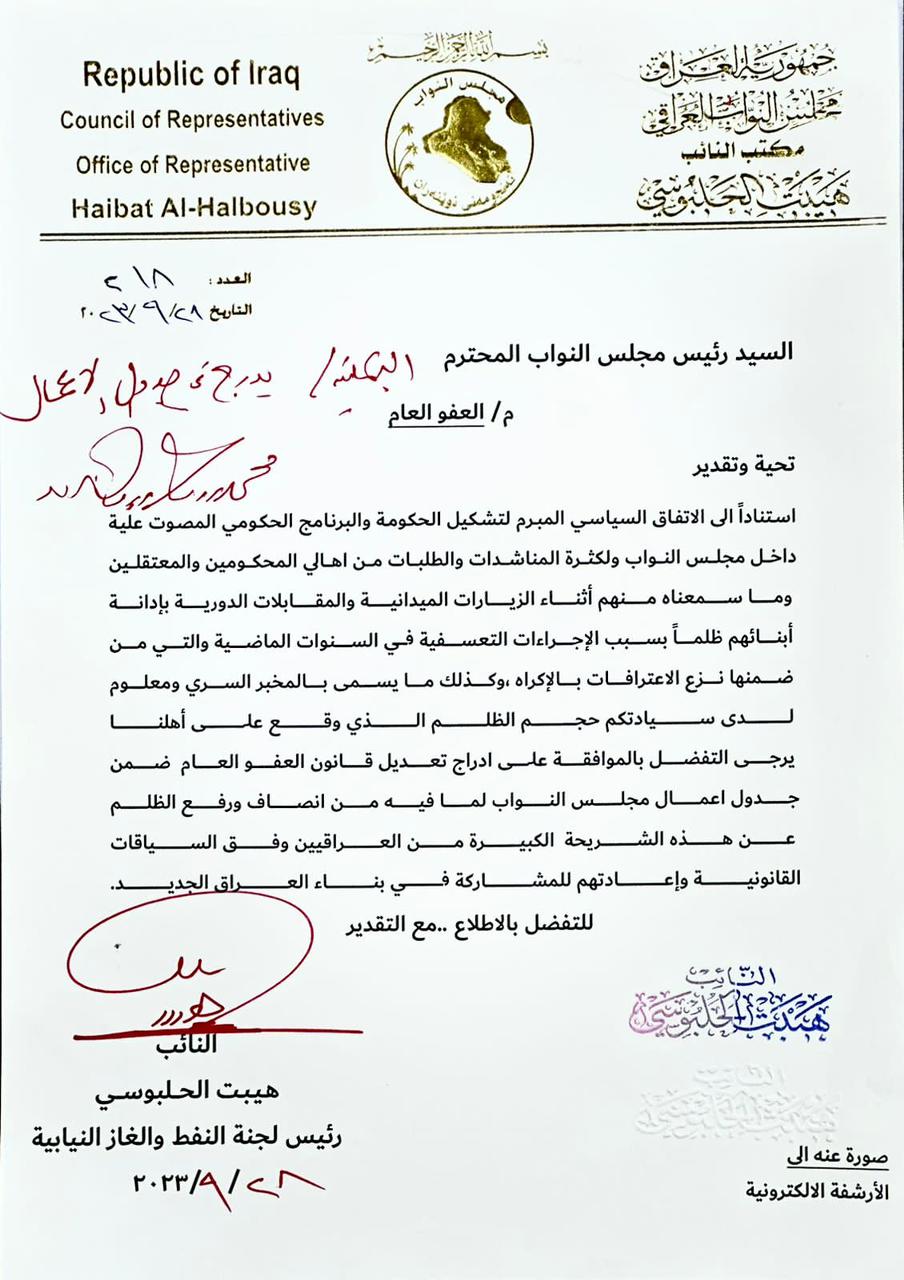 بسم الله الرحمن الرحيم
Republic of Iraq
Council of Representatives
Office of Representative
Haibat Al-Halbousy
مجلس النواب
جمهورية العراق
مجلس النواب العراقي
مكتب النائب
هيبت الحلبوسي
العدد : ٢١٨
التاريخ ٢٠٢٣/٩/٢٨
السيد رئيس مجلس النواب المحترم
يدرج في جدول الاعمال
م/ العفو العام
تحية وتقدير
استناداً الى الاتفاق السياسي المبرم لتشكيل الحكومة والبرنامج الحكومي المصوت علية
داخل مجلس النواب ولكثرة المناشدات والطلبات من اهالي المحكومين والمعتقلين
وما سمعناه منهم أثناء الزيارات الميدانية والمقابلات الدورية بإدانة
أبنائهم ظلماً بسبب الإجراءات التعسفية في السنوات الماضية والتي من
ضمنها نزع الاعترافات بالإكراه ،وكذلك ما يسمى بالمخبر السري ومعلوم
لدى سيادتكم حجم الظلم الذي وقع على أهلنا
يرجى التفضل بالموافقة على ادراج تعديل قانون العفو العام ضمن
جدول اعمال مجلس النواب لما فيه من انصاف ورفع الظلم
عن هذه الشريحة الكبيرة من العراقيين وفق السياقات
القانونية وإعادتهم للمشاركة في بناء العراق الجديد.
للتفضل بالاطلاع ..مع التقدير
النائب
هيبت الحلبوسي
النائب
هيبت الحلبوسي
النائب
هيبت الحلبوسي
رئيس لجنة النفط والغاز النيابية
٢٠٢٣/٩/٢٨
صورة عنه الى
الأرشفة الالكترونية